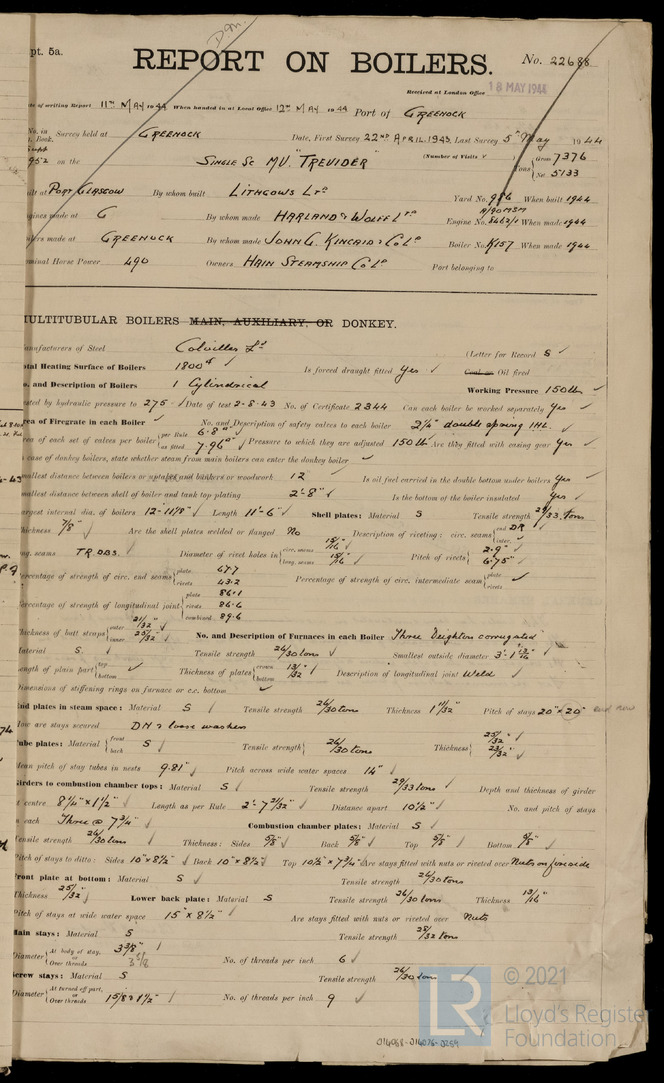 D.M.
pt. 5a.
REPORT ON BOILERS.
No. 22688
Received at London Office 18 MAY 1944
te of writing Report 11TH MAY 1944 When handed in at Local Office 12TH MAY 1944 Port of GREENOCK
No. in Survey held at GREENOCK Date, First Survey 22ND APRIL 1943, Last Survey 5th May 1944
. Book.
952 on the SINGLE SC MV. "TREVIDER" (Number of Visits ) Tons { Gross 7376
Net 5133
ilt at PORT GLASGOW By whom built LITHGOWS LTD Yard No. 986 When built 1944
gines made at G By whom made HARLAND & WOLFF LTD Engine No. 8462/1 When made 1944
ilers made at GREENOCK By whom made JOHN G. KINCAID & CO LD Boiler No. K157 When made 1944
ominal Horse Power 490 Owners HAIN STEAMSHIP CO LD Port belonging to
MULTITUBULAR BOILERS MAIN, AUXILIARY, OR DONKEY.
anufacturers of Steel Colvilles Ld (Letter for Record S ✓
otal Heating Surface of Boilers 1800 ✓ Is forced draught fitted Yes ✓ Coal or Oil fired
o. and Description of Boilers 1 Cylindrical Working Pressure 150 lb ✓
ested by hydraulic pressure to 275 ✓ Date of test 2-8-43 No. of Certificate 2344 Can each boiler be worked separately Yes ✓
rea of Firegrate in each Boiler ✓ No. and Description of safety valves to each boiler 2¼" double spring IHL. ✓
rea of each set of valves per boiler { per Rule 6.8
as fitted 7.96 ✓ Pressure to which they are adjusted 150 lb ✓ Are they fitted with easing gear Yes ✓
case of donkey boilers, state whether steam from main boilers can enter the donkey boiler ✓
mallest distance between boilers or uptakes and bunkers or woodwork 12 Is oil fuel carried in the double bottom under boilers Yes
mallest distance between shell of boiler and tank top plating 2'-8" ✓ Is the bottom of the boiler insulated Yes ✓
argest internal dia. of boilers 12'-11⅛" ✓ Length 11'-6" ✓ Shell plates: Material S Tensile strength 29/33 tons
hickness 7/8" ✓ Are the shell plates welded or flanged No Description of riveting: circ. seams { end DR ✓
inter.
ng. seams TR.DBS. Diameter of rivet holes in { circ. seams 15/16 ✓
long. seams 15/16 ✓ Pitch of rivets { 2.9" ✓
6.75" ✓
ercentage of strength of circ. end seams { plate 67.7
rivets 43.2 Percentage of strength of circ. intermediate seam { plate ✓
rivets
ercentage of strength of longitudinal joint { plate 86.1
rivets 86.6
combined 89.6
hickness of butt straps { outer 21/32" ✓
inner 25/32" ✓ No. and Description of Furnaces in each Boiler Three Deighton corrugated
Material S. Tensile strength 26/30 tons ✓ Smallest outside diameter
ength of plain part { top ✓
bottom Thickness of plates { crown 13/32 ✓
bottom Description of longitudinal joint Weld ✓
Dimensions of stiffening rings on furnace or c.c. bottom ✓
nd plates in steam space: Material S ✓ Tensile strength 26/30 tons Thickness 1 1/32" ✓ Pitch of stays 20" × 20"
ow are stays secured DN & loose washers
ube plates: Material { front
back S ✓ Tensile strength { 26/30 tons Thickness { 25/32" ✓
23/32" ✓
ean pitch of stay tubes in nests 9.81" ✓ Pitch across wide water spaces 14" ✓
Girders to combustion chamber tops: Material S ✓ Tensile strength 29/33 tons ✓ Depth and thickness of girder
t centre 8¼" × 1½" ✓ Length as per Rule 2'-7 21/32" ✓ Distance apart 10½" ✓ No. and pitch of stays
n each Three @ 7¾" ✓ Combustion chamber plates: Material S ✓
ensile strength 26/30 tons ✓ Thickness: Sides 5/8" ✓ Back 5/8" ✓ Top 5/8" ✓ Bottom 5/8" ✓
itch of stays to ditto: Sides 10" × 8½" ✓ Back 10" × 8½" ✓ Top 10½" × 7¾" Are stays fitted with nuts or riveted over Nuts on fireside
ront plate at bottom: Material S ✓ Tensile strength 26/30 tons
hickness 25/32" ✓ Lower back plate: Material S Tensile strength 26/30 tons ✓ Thickness 13/16" ✓
itch of stays at wide water space 15" × 8½" ✓ Are stays fitted with nuts or riveted over Nuts
Main stays: Material S Tensile strength 28/32 tons
iameter { At body of stay, 3⅜"
or
Over threads 3⅝ No. of threads per inch 6 ✓
crew stays: Material S Tensile strength 26/30 tons
iameter { At turned off part,
or
Over threads 1⅝ & 1½" ✓ No. of threads per inch 9 ✓
LR © 2021
Lloyd's Register
Foundation
014068-014076-0259